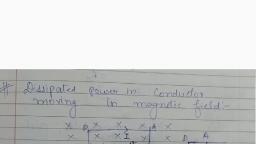 # Dissipated power in conductor
moving in magnetic field :-
x x x x
x x x I x x